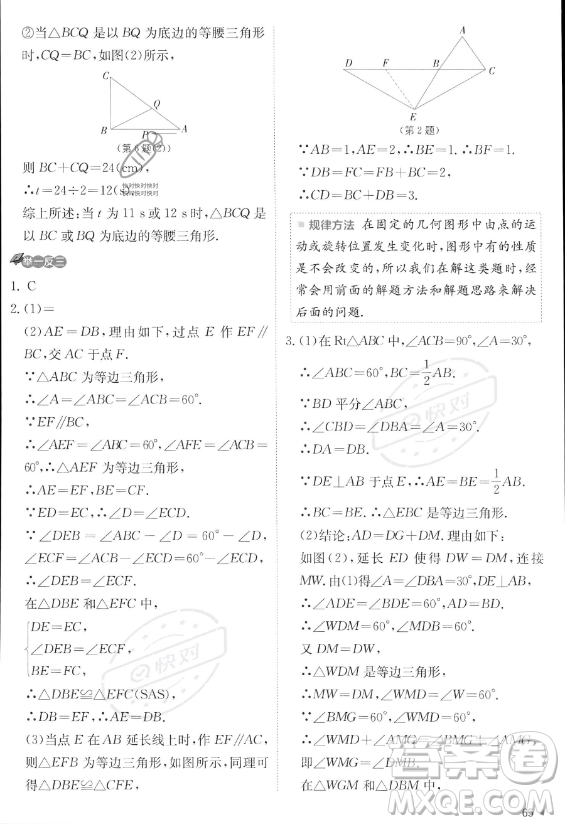 ②当△BCQ是以BQ为底边的等腰三角形
时,CQ=BC,如图(2)所示,
C
Q
B
A
则BC+CQ=24(cm),
∴t=24÷2=12(s).
综上所述:当t为11 s或12 s时,△BCQ是
以BC或BQ为底边的等腰三角形.
举一反三
1. C
2. (1)=
(2)AE=DB,理由如下,过点E作EF∥
BC,交AC于点F.
∵△ABC为等边三角形,
∴∠A=∠ABC=∠ACB=60°.
∵EF∥BC,
∴∠AEF=∠ABC=60°,∠AFE=∠ACB=
60°,∴△AEF为等边三角形,
∴AE=EF,BE=CF.
∵ED=EC,∴∠D=∠ECD,
∵∠DEB=∠ABC-∠D=60°-∠D,
∠ECF=∠ACB-∠ECD=60°-∠ECD,
∴∠DEB=∠ECF.
在△DBE和△EFC中,
DE=EC,
∠DEB=∠ECF,
BE=CF,
∴△DBE≌△EFC(SAS),
∴DB=EF,∴AE=DB.
(3)当点E在AB延长线上时,作EF∥AC,
则△EFB为等边三角形,如图所示,同理可
得△DBE≌△CFE,
A
D
F
B
C
E
(第2题)
∵AB=1,AE=2,∴BE=1.
∵DB=FC=FB+BC=2,
∴CD=BC+DB=3.
规律方法 在固定的几何图形中由点的运
动或旋转位置发生变化时,图形中有的性质
是不会改变的,所以我们在解这类题时,经
常会用前面的解题方法和解题思路来解决
后面的问题.
3. (1)在Rt△ABC中,∠ACB=90°,∠A=30°,
∴∠ABC=60°,BC=1/2AB.
∵BD平分∠ABC,
∴∠CBD=∠DBA=∠A=30°.
∴DA=DB.
∵DE⊥AB于点E,∴AE=BE=1/2AB.
∴BC=BE.∴△EBC是等边三角形.
(2)结论:AD=DG+DM.理由如下:
如图(2),延长ED使得DW=DM,连接
MW.由(1)得∠A=∠ABD=30°,DE⊥AB,
∴∠ADE=∠BDE=60°,∠ADB=120°,
∴∠WDM=∠ADE=60°.
又DM=DW,
∴△WDM是等边三角形,
∴MW=DM,∠WMD=∠W=60°.
∵∠BMG=60°,∴∠WMD=∠BMG,
∴∠WMD+∠AMG=∠BMG+∠AMG,
即∠WMG=∠DMB.
在△WGM和△DBM中,
快对
快对
答案圈
69